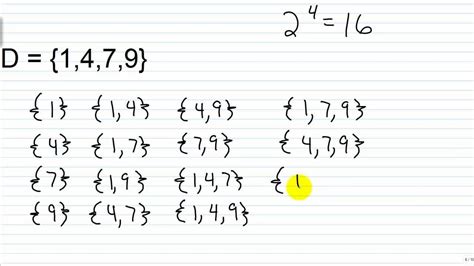 2⁴ = 16
D = {1,4,7,9}
{1} {1,4} {4,9} {1,7,9}
{4} {1,7} {7,9} {4,7,9}
{7} {1,9} {1,4,7} {1
{9} {4,7} {1,4,9}